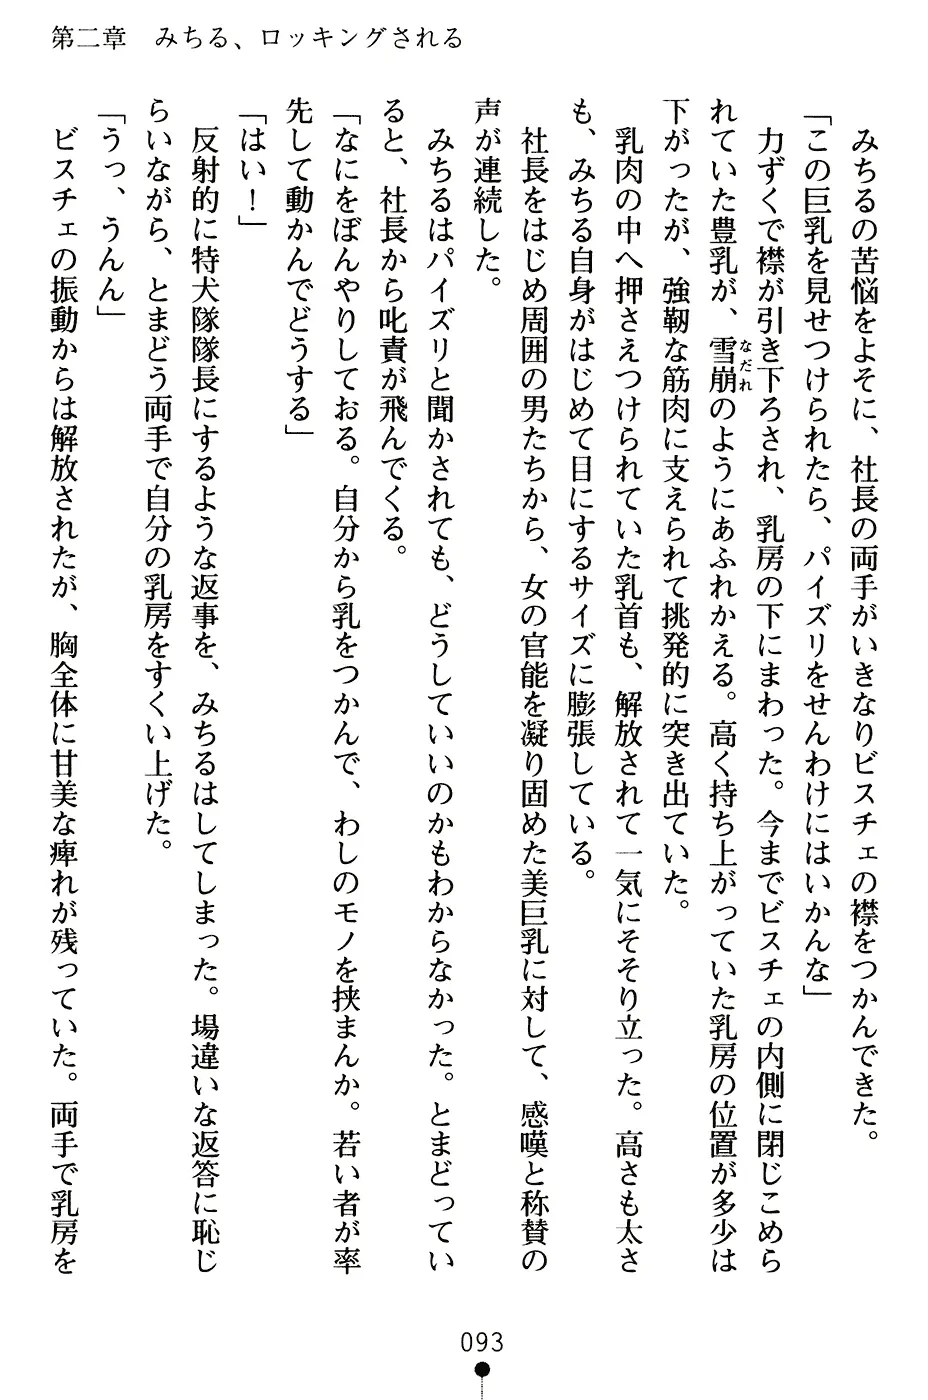 第二章　みちる、ロッキングされる
　みちるの苦悩をよそに、社長の両手がいきなりビスチェの襟をつかんできた。
「この巨乳を見せつけられたら、パイズリをせんわけにはいかんな」
　力ずくで襟が引き下ろされ、乳房の下にまわった。今までビスチェの内側に閉じこめら
れていた豊乳が、雪崩のようにあふれかえる。高く持ち上がっていた乳房の位置が多少は
なだれ
下がったが、強靭な筋肉に支えられて挑発的に突き出ていた。
　乳肉の中へ押さえつけられていた乳首も、解放されて一気にそそり立った。高さも太さ
も、みちる自身がはじめて目にするサイズに膨張している。
　社長をはじめ周囲の男たちから、女の官能を凝り固めた美巨乳に対して、感嘆と称賛の
声が連続した。
　みちるはパイズリと聞かされても、どうしていいのかもわからなかった。とまどってい
ると、社長から叱責が飛んでくる。
「なにをぼんやりしておる。自分から乳をつかんで、わしのモノを挟まんか。若い者が率
先して動かんでどうする」
「はい！」
　反射的に特犬隊隊長にするような返事を、みちるはしてしまった。場違いな返答に恥じ
らいながら、とまどう両手で自分の乳房をすくい上げた。
「うっ、うんん」
　ビスチェの振動からは解放されたが、胸全体に甘美な痺れが残っていた。両手で乳房を
093